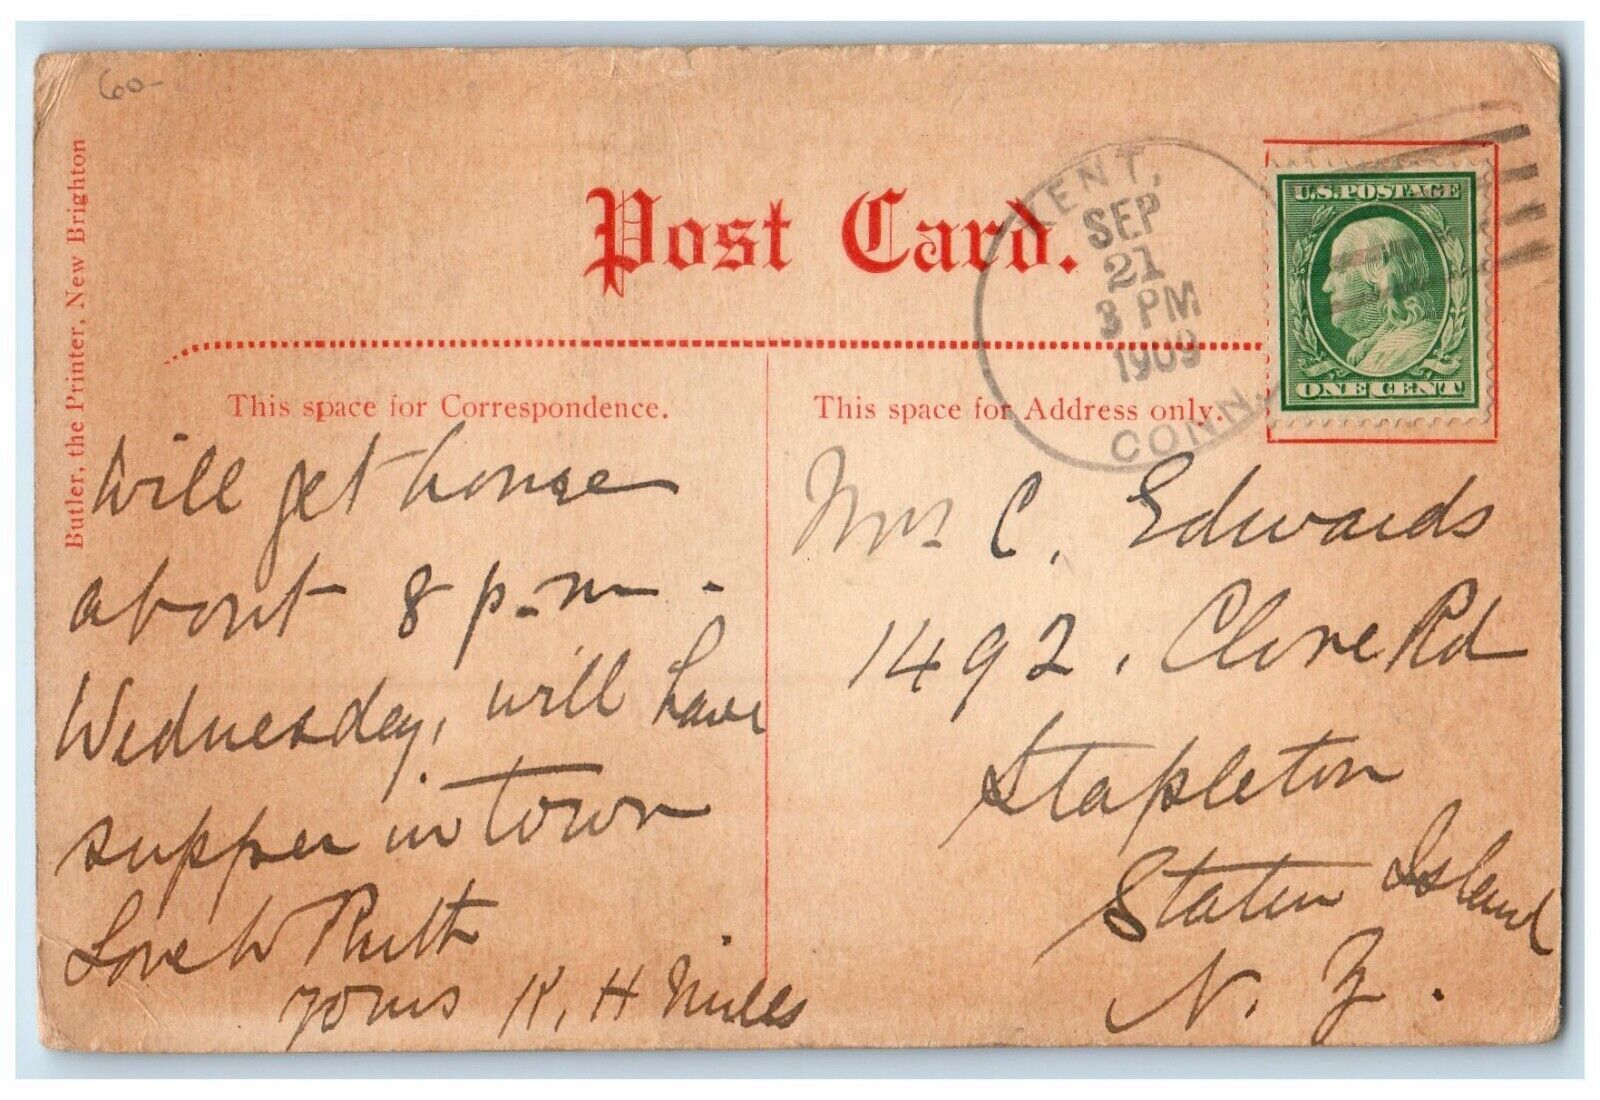 60-
Butler, the Printer, New Brighton
Post Card.
KENT,
SEP
21
3 PM
1909
CONN.
U.S. POSTAGE
ONE CENT
This space for Correspondence.
This space for Address only.
Will get home
about 8 p.m.
Wednesday, will have
supper in town
Love to Ruth
yours K. H Mills
Mrs C. Edwards
1492, Clove Rd
Stapleton
Staten Island
N. Y.